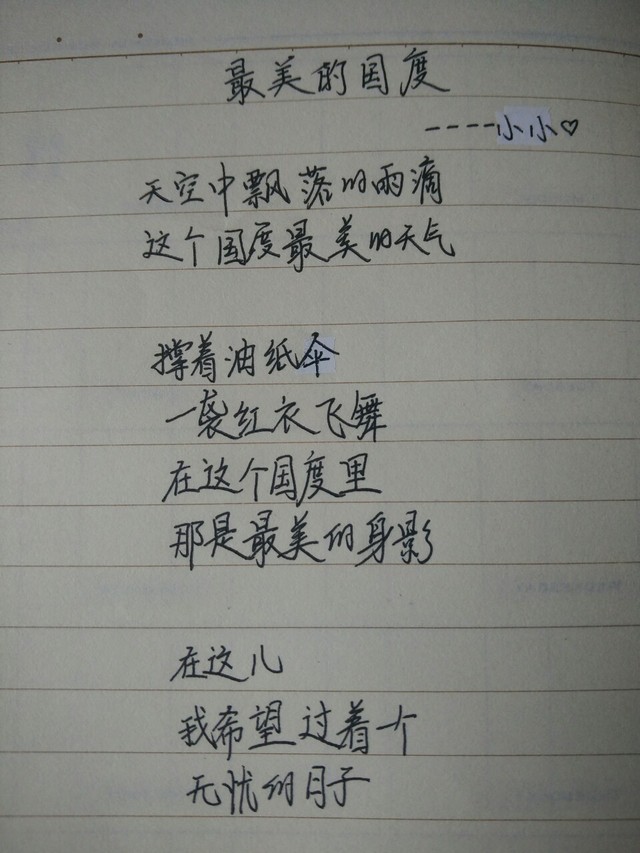 最美的国度
----小小♡
天空中飘落的雨滴
这个国度最美的天气
撑着油纸伞
一袭红衣飞舞
在这个国度里
那是最美的身影
在这儿
我希望过着一个
无忧的日子